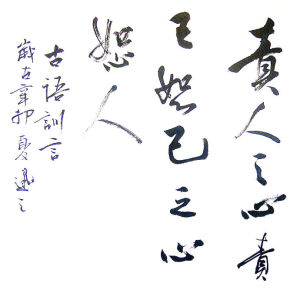 責人之心責
己恕己之心
恕人
古语訓言
歲在辛卯夏